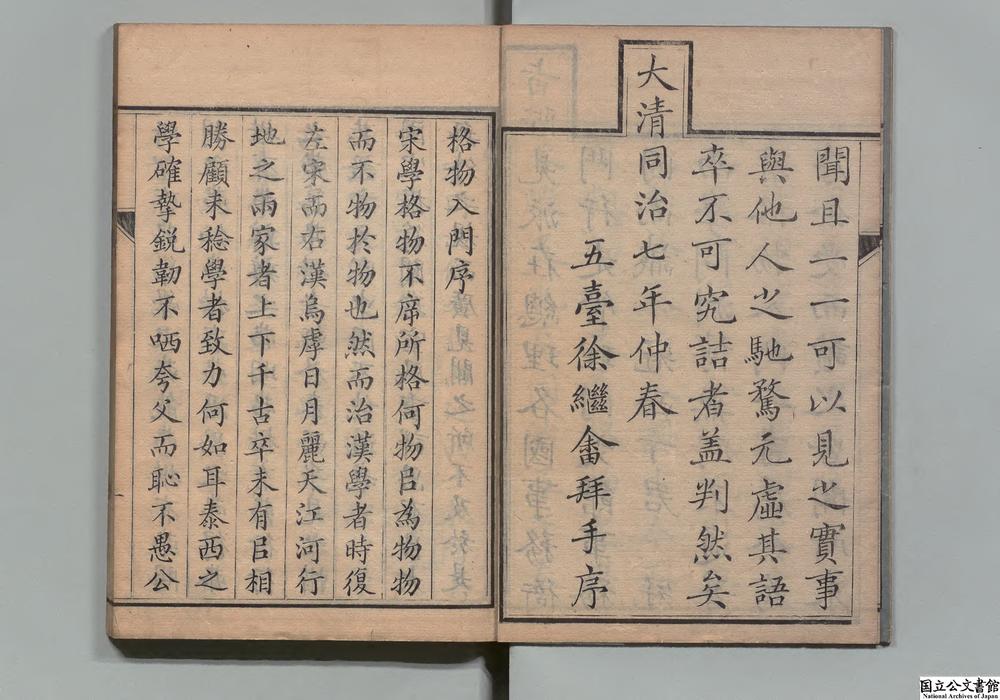 聞且一一可以見之實事
與他人之馳騖元虛其語
卒不可究詰者盖判然矣
大清同治七年仲春
五臺徐繼畬拜手序
格物入門序
宋學格物不席所格何物㠯為物物
而不物於物也然而治漢學者時復
左宋而右漢烏虖日月麗天江河行
地之兩家者上下千古卒未有㠯相
勝顧未稔學者致力何如耳泰西之
學確摯鋭韌不哂夸父而恥不愚公
国立公文書館
National Archives of Japan